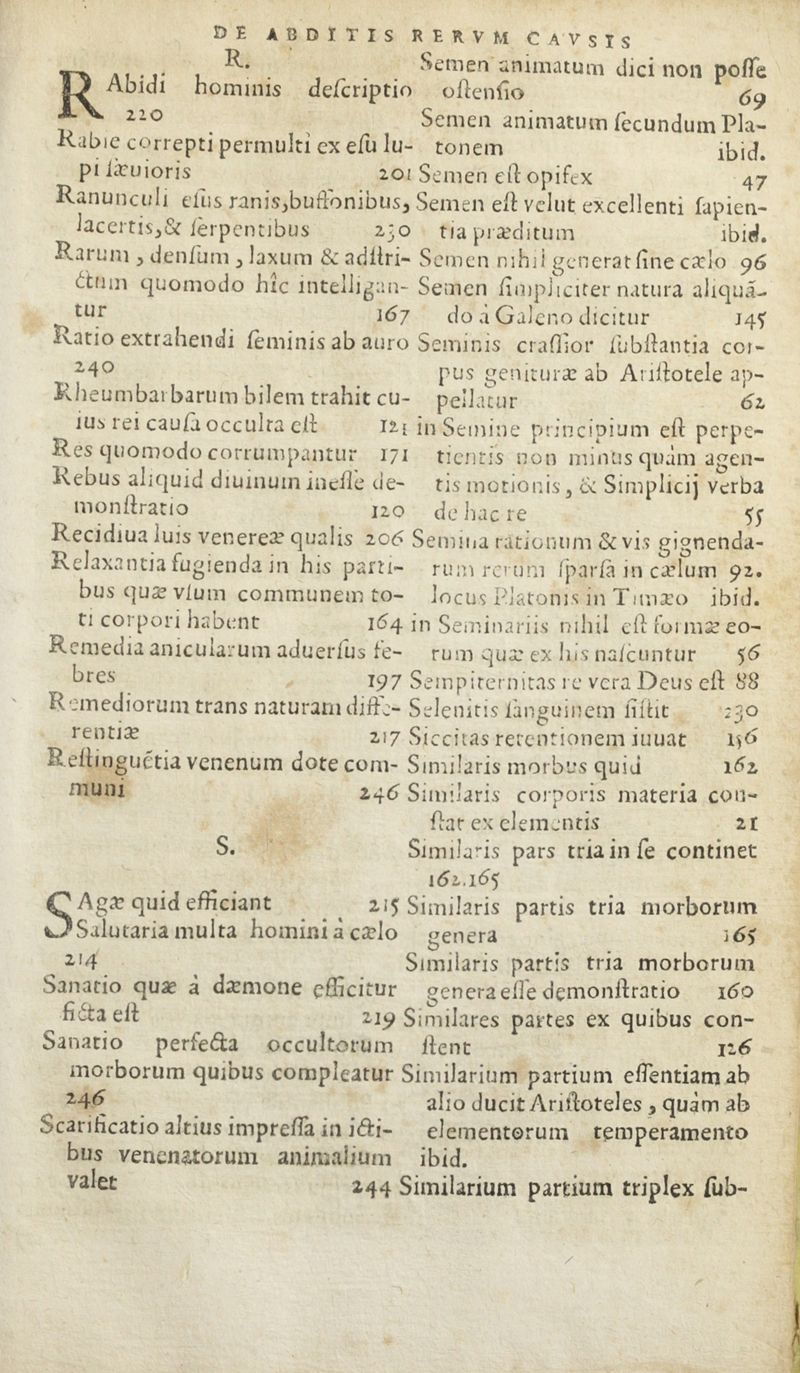 DE ABDITIS RERVM CAVSIS
R.
RAbidi hominis deſcriptio
220
Rabie correpti permulti ex eſu lu-
pi ſæuioris 201
Ranunculi eſus ranis,buffonibus,
lacertis,& ſerpentibus 230
Rarum , denſum , laxum & adſtri-
ctum quomodo hîc intelligan-
tur 167
Ratio extrahendi ſeminis ab auro
240
Rheumbarbarum bilem trahit cu-
ius rei cauſa occulta eſt 121
Res quomodo corrumpantur 171
Rebus aliquid diuinum ineſſe de-
monſtratio 120
Recidiua luis venereæ qualis 206
Relaxantia fugienda in his parti-
bus quæ vſum communem to-
ti corpori habent 164
Remedia anicularum aduerſus fe-
bres 197
Remediorum trans naturam diffe-
rentiæ 217
Reſtinguẽtia venenum dote com-
muni 246
S.
SAgæ quid efficiant 215
Salutaria multa homini à cælo
214
Sanatio quæ à dæmone efficitur
ficta eſt 219
Sanatio perfecta occultorum
morborum quibus compleatur
246
Scarificatio altius impreſſa in icti-
bus venenatorum animalium
valet 244
Semen animatum dici non poſſe
oſtenſio 69
Semen animatum ſecundum Pla-
tonem ibid.
Semen eſt opifex 47
Semen eſt velut excellenti ſapien-
tia præditum ibid.
Semen nihil generat ſine cælo 96
Semen ſimpliciter natura aliquã-
do à Galeno dicitur 145
Seminis craſſior ſubſtantia cor-
pus genituræ ab Ariſtotele ap-
pellatur 62
in Semine principium eſt perpe-
tientis non minus quàm agen-
tis motionis , & Simplicij verba
de hac re 55
Semina rationum & vis gignenda-
rum rerum ſparſa in cælum 92.
locus Platonis in Timæo ibid.
in Seminariis nihil eſt formæ eo-
rum quæ ex his naſcuntur 56
Sempiternitas re vera Deus eſt 88
Selenitis ſanguinem ſiſtit 230
Siccitas retentionem iuuat 156
Similaris morbus quid 162
Similaris corporis materia con-
ſtat ex elementis 21
Similaris pars tria in ſe continet
162.165
Similaris partis tria morborum
genera 165
Similaris partis tria morborum
genera eſſe demonſtratio 160
Similares partes ex quibus con-
ſtent 126
Similarium partium eſſentiam ab
alio ducit Ariſtoteles , quàm ab
elementorum temperamento
ibid.
Similarium partium triplex ſub-